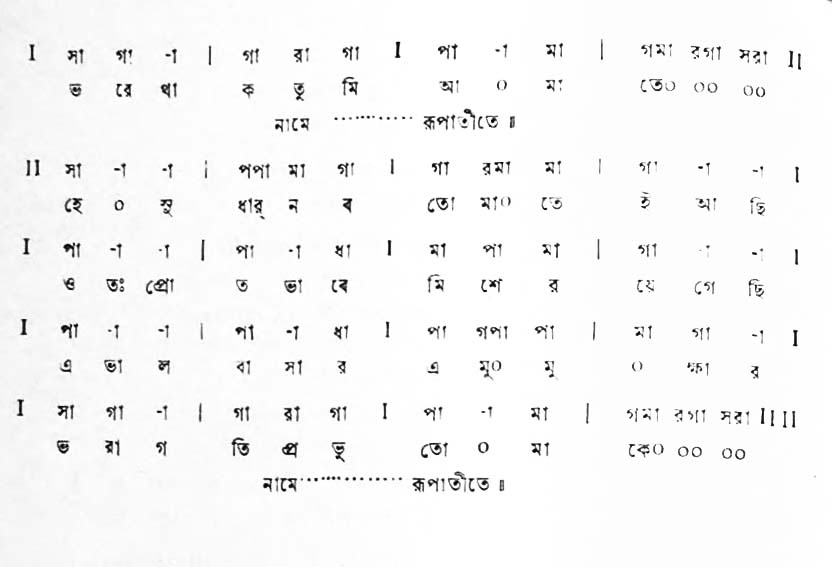 I সা গা -া | গা রা গা I পা -া মা | গমা রগা সরা II
ভ রে থা ক তু মি আ ০ মা তে০ ০০ ০০
নামে ············ রূপাতীতে ॥
II সা -া -া | পপা মা গা I গা রমা মা | গা -া -া I
হে ০ সু ধার্ ন ব তো মা০ তে ই আ ছি
I পা -া -া | পা -া ধা I মা পা মা | গা -া -া I
ও তঃ প্রো ত ভা বে মি শে র য়ে গে ছি
I পা -া -া | পা -া ধা I পা গপা পা | মা গা -া I
এ ভাল বা সা র এ মু০ মু ০ ক্ষা র
I সা গা -া | গা রা গা I পা -া মা | গমা রগা সরা II II
ভ রা গ তি প্র ভু তো ০ মা কে০ ০০ ০০
নামে ············ রূপাতীতে ॥